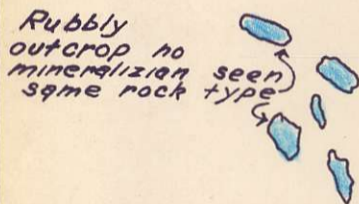 Rubbly
outcrop no
mineralizian seen
same rock type